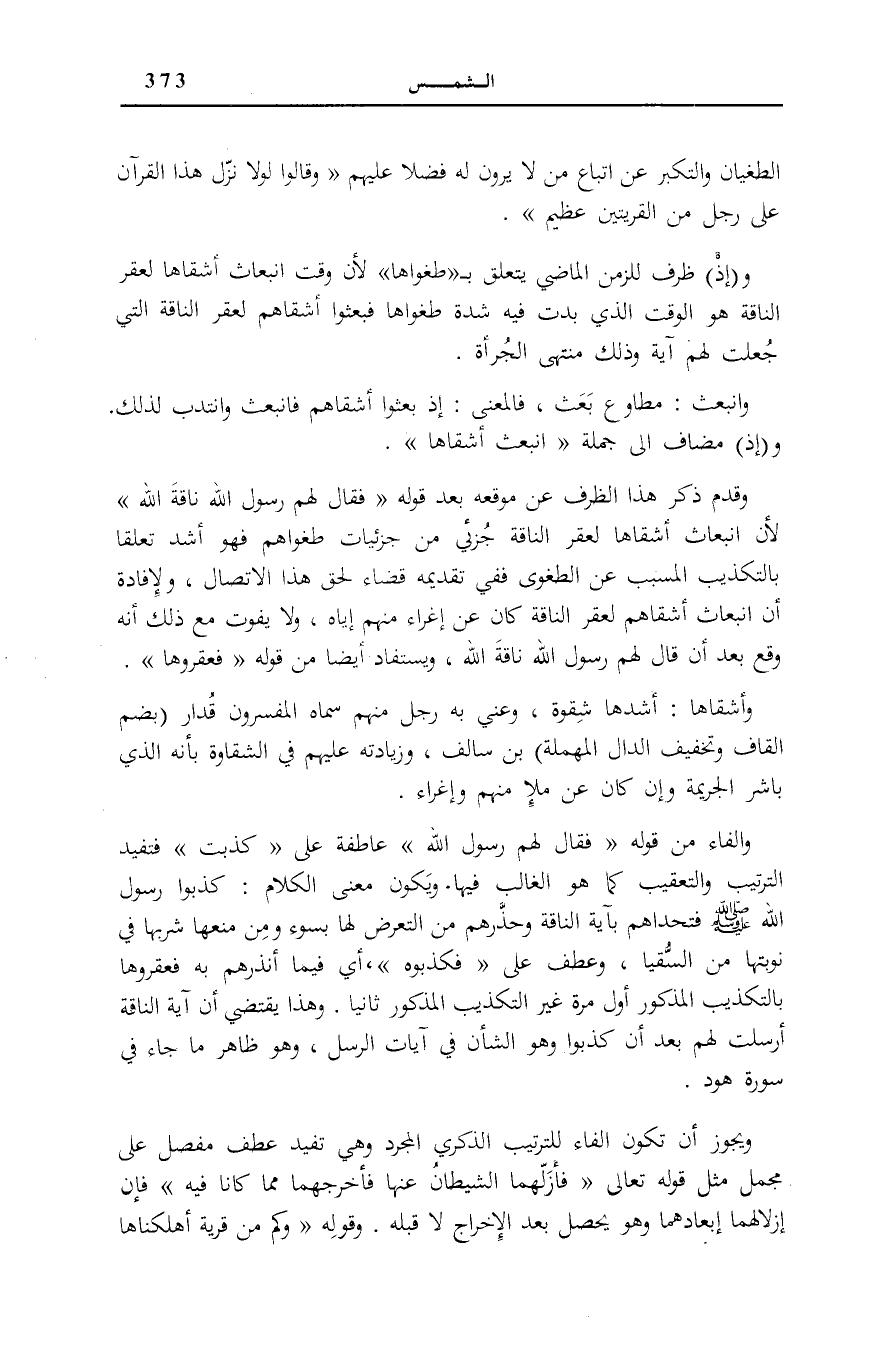 373 الـشمـــس
الطغيان والتكبر عن اتباع من لا يرون له فضلا عليهم « وقالوا لولا نزّل هذا القرآن
على رجل من القريتين عظيم » .
و(إذْ) ظرف للزمن الماضي يتعلق بـ«طغواها» لأن وقت انبعاث أشقاها لعقر
الناقة هو الوقت الذي بدت فيه شدة طغواها فبعثوا أشقاهم لعقر الناقة التي
جُعلت لهم آية وذلك منتهى الجُرأة .
وانبعث : مطاوع بَعَث ، فالمعنى : إذ بعثوا أشقاهم فانبعث وانتدب لذلك.
و(إذ) مضاف الى جملة « انبعث أشقاها » .
وقدم ذكر هذا الظرف عن موقعه بعد قوله « فقال لهم رسول الله ناقةَ الله »
لأن انبعاث أشقاها لعقر الناقة جُزئي من جزئيات طغواهم فهو أشد تعلقا
بالتكذيب المسبب عن الطغوى ففي تقديمه قضاء لحق هذا الاتصال ، ولإفادة
أن انبعاث أشقاهم لعقر الناقة كان عن إغراء منهم إياه ، ولا يفوت مع ذلك أنه
وقع بعد أن قال لهم رسول الله ناقةَ الله ، ويستفاد أيضا من قوله « فعقروها » .
وأشقاها : أشدها شِقوة ، وعني به رجل منهم سماه المفسرون قُدار (بضم
القاف وتخفيف الدال المهملة) بن سالف ، وزيادته عليهم في الشقاوة بأنه الذي
باشر الجريمة وإن كان عن ملإ منهم وإغراء .
والفاء من قوله « فقال لهم رسول الله » عاطفة على « كذبت » فتفيد
الترتيب والتعقيب كما هو الغالب فيها. ويَكون معنى الكلام : كذبوا رسول
الله ﷺ فتحداهم بآية الناقة وحذَّرهم من التعرض لها بسوء ومِن منعها شربها في
نوبتها من السُّقيا ، وعطف على « فكذبوه »، أي فيما أنذرهم به فعقروها
بالتكذيب المذكور أول مرة غير التكذيب المذكور ثانيا . وهذا يقتضي أن آية الناقة
أرسلت لهم بعد أن كذبوا وهو الشأن في آيات الرسل ، وهو ظاهر ما جاء في
سورة هود .
ويجوز أن تكون الفاء للترتيب الذكري المجرد وهي تفيد عطف مفصل على
مجمل مثل قوله تعالى « فأزَلّهما الشيطانُ عنها فأخرجهما مما كانا فيه » فإن
إزلالهما إبعادهما وهو يحصل بعد الإخراج لا قبله . وقولِه « وكم من قرية أهلكناها